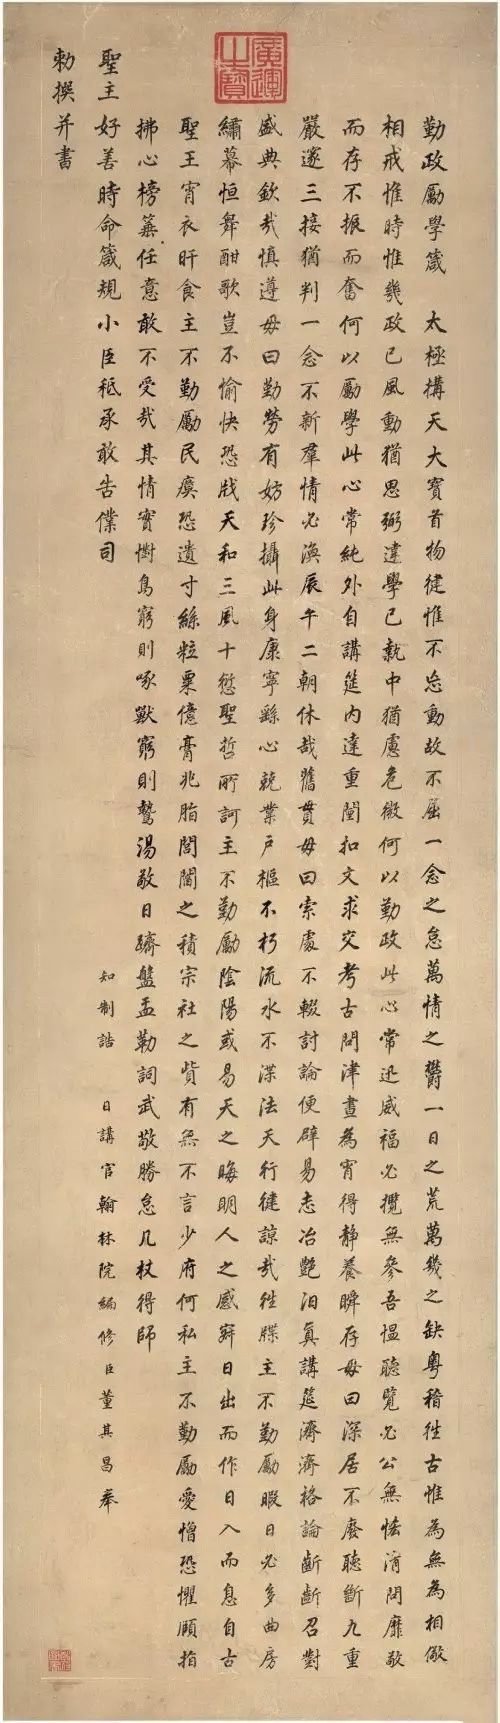 廣運之寶
勤政勵學箴　太極構天大寶首物健惟不息動故不屈一念之怠萬情之鬱一日之荒萬幾之缺粵稽往古惟為無為相儆
相戒惟時惟幾政已風動猶思弼違學已執中猶慮危微何以勤政此心常迅威福必攬無參吾慍聽覽必公無恡清問靡敢
而存不振而奮何以勵學此心常純外自講筵內達重闈扣文求交考古問津晝為宵得靜養瞬存毋曰深居不廢聽斷九重
嚴邃三接猶判一念不新羣情必渙辰午二朝休哉舊貫毋曰索處不輟討論便辟易志冶艷汩真講筵濟濟格論齗齗召對
盛典欽哉慎遵毋曰勤勞有妨珍攝此身康寧繇心兢業戶樞不朽流水不渫法天行健諒哉往牒主不勤勵暇日必多曲房
繡幕恒舞酣歌豈不愉快恐戕天和三風十愆聖哲所訶主不勤勵陰陽或易天之晦明人之感辟日出而作日入而息自古
聖王宵衣旰食主不勤勵民瘼恐遺寸絲粒粟億膏兆脂閭閻之積宗社之貲有無不言少府何私主不勤勵愛憎恐懼頤指
拂心榜箠任意敢不受哉其情實懟鳥窮則啄獸窮則鷙湯敬日躋盤盂勒詞武敬勝怠几杖得師
聖主好善時命箴規小臣祗承敢告僕司
知制誥　日講官翰林院編修臣董其昌奉
勅撰并書